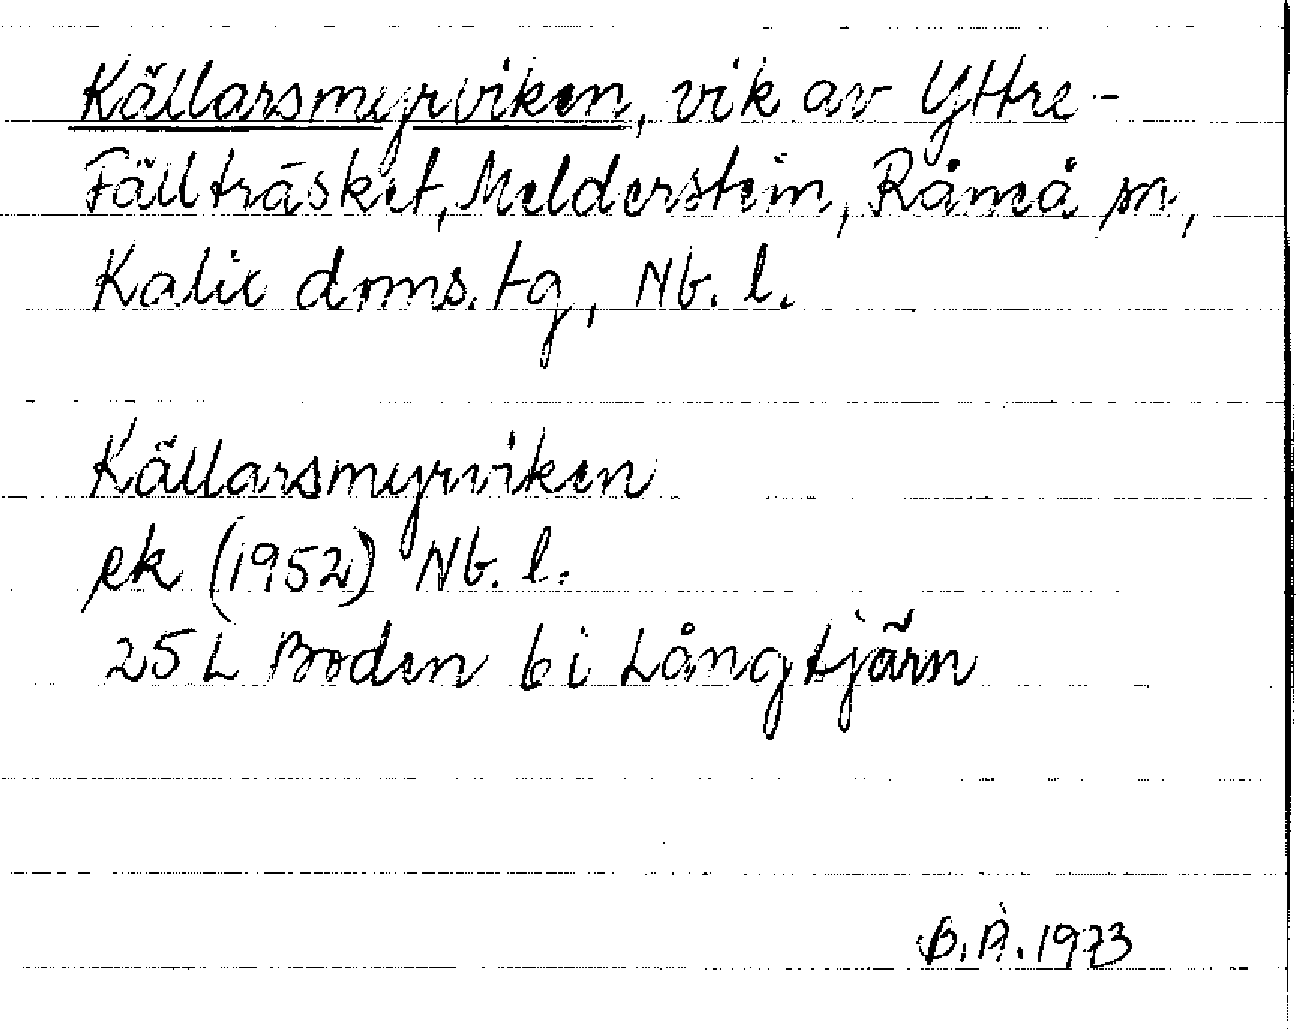 Källarsmyrviken, vik av Yttre-
Fällträsket, Melderstein, Råneå sn,
Kalix doms. tg, Nb. l.
Källarsmyrviken
ek (1952) Nb. l.
25 L Boden 6 i Långtjärn
B.Å. 1973